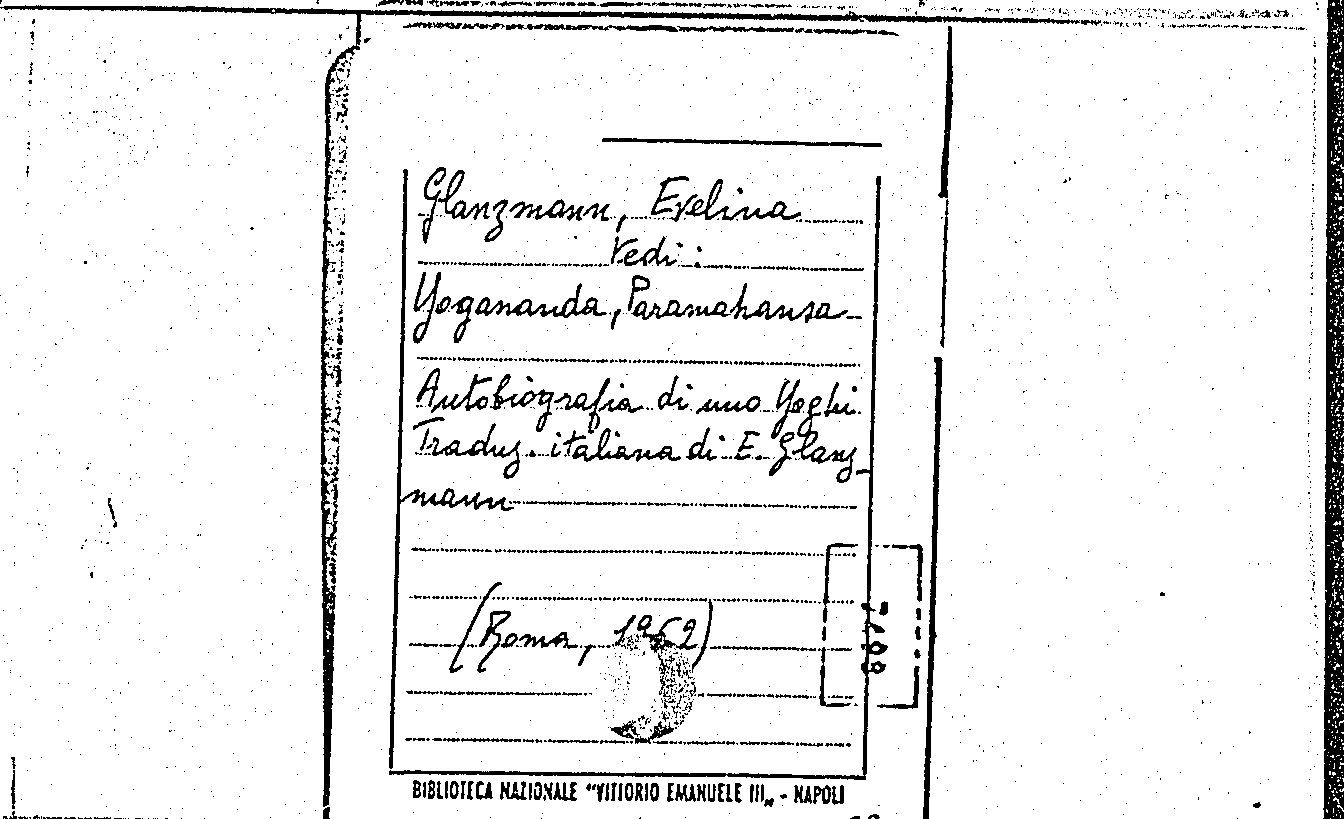 Glanzmann, Evelina
Vedi:
Yogananda, Paramahansa
Autobiografia di uno Yoghi
Traduz. italiana di E. Glanz-
mann
(Roma, 1962)
BIBLIOTECA NAZIONALE "VITTORIO EMANUELE III„ - NAPOLI